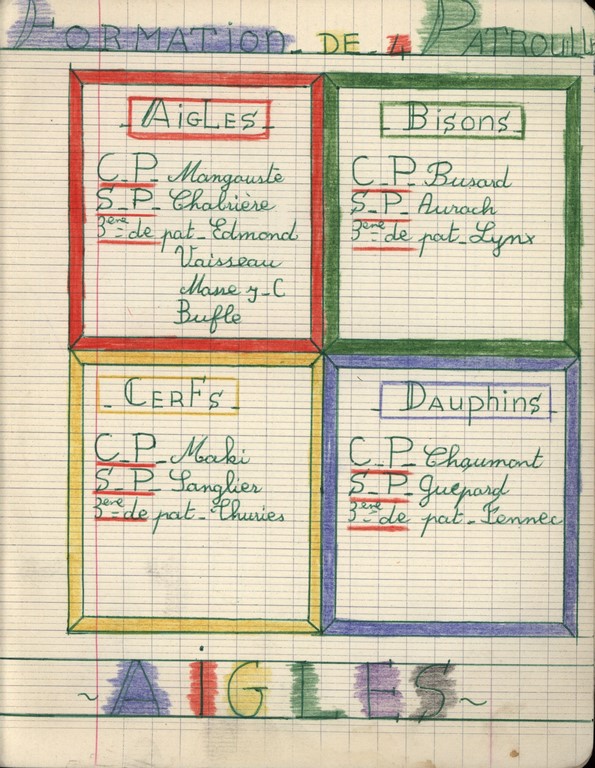 FORMATION DE 4 PATROUILLE
AIGLES
C_P_ Mangouste
S_P_ Chabrière
3ème de pat_ Edmond
Vaisseau
Masse J_C
Bufle
BISONS
C_P_ Busard
S_P_ Auroch
3ème de pat_ Lynx
CERFS
C_P_ Maki
S_P_ Sanglier
3ème de pat_ Thuries
DAUPHINS
C_P_ Chaumont
S_P_ Guépard
3ème de pat_ Fennec
~ AIGLES ~